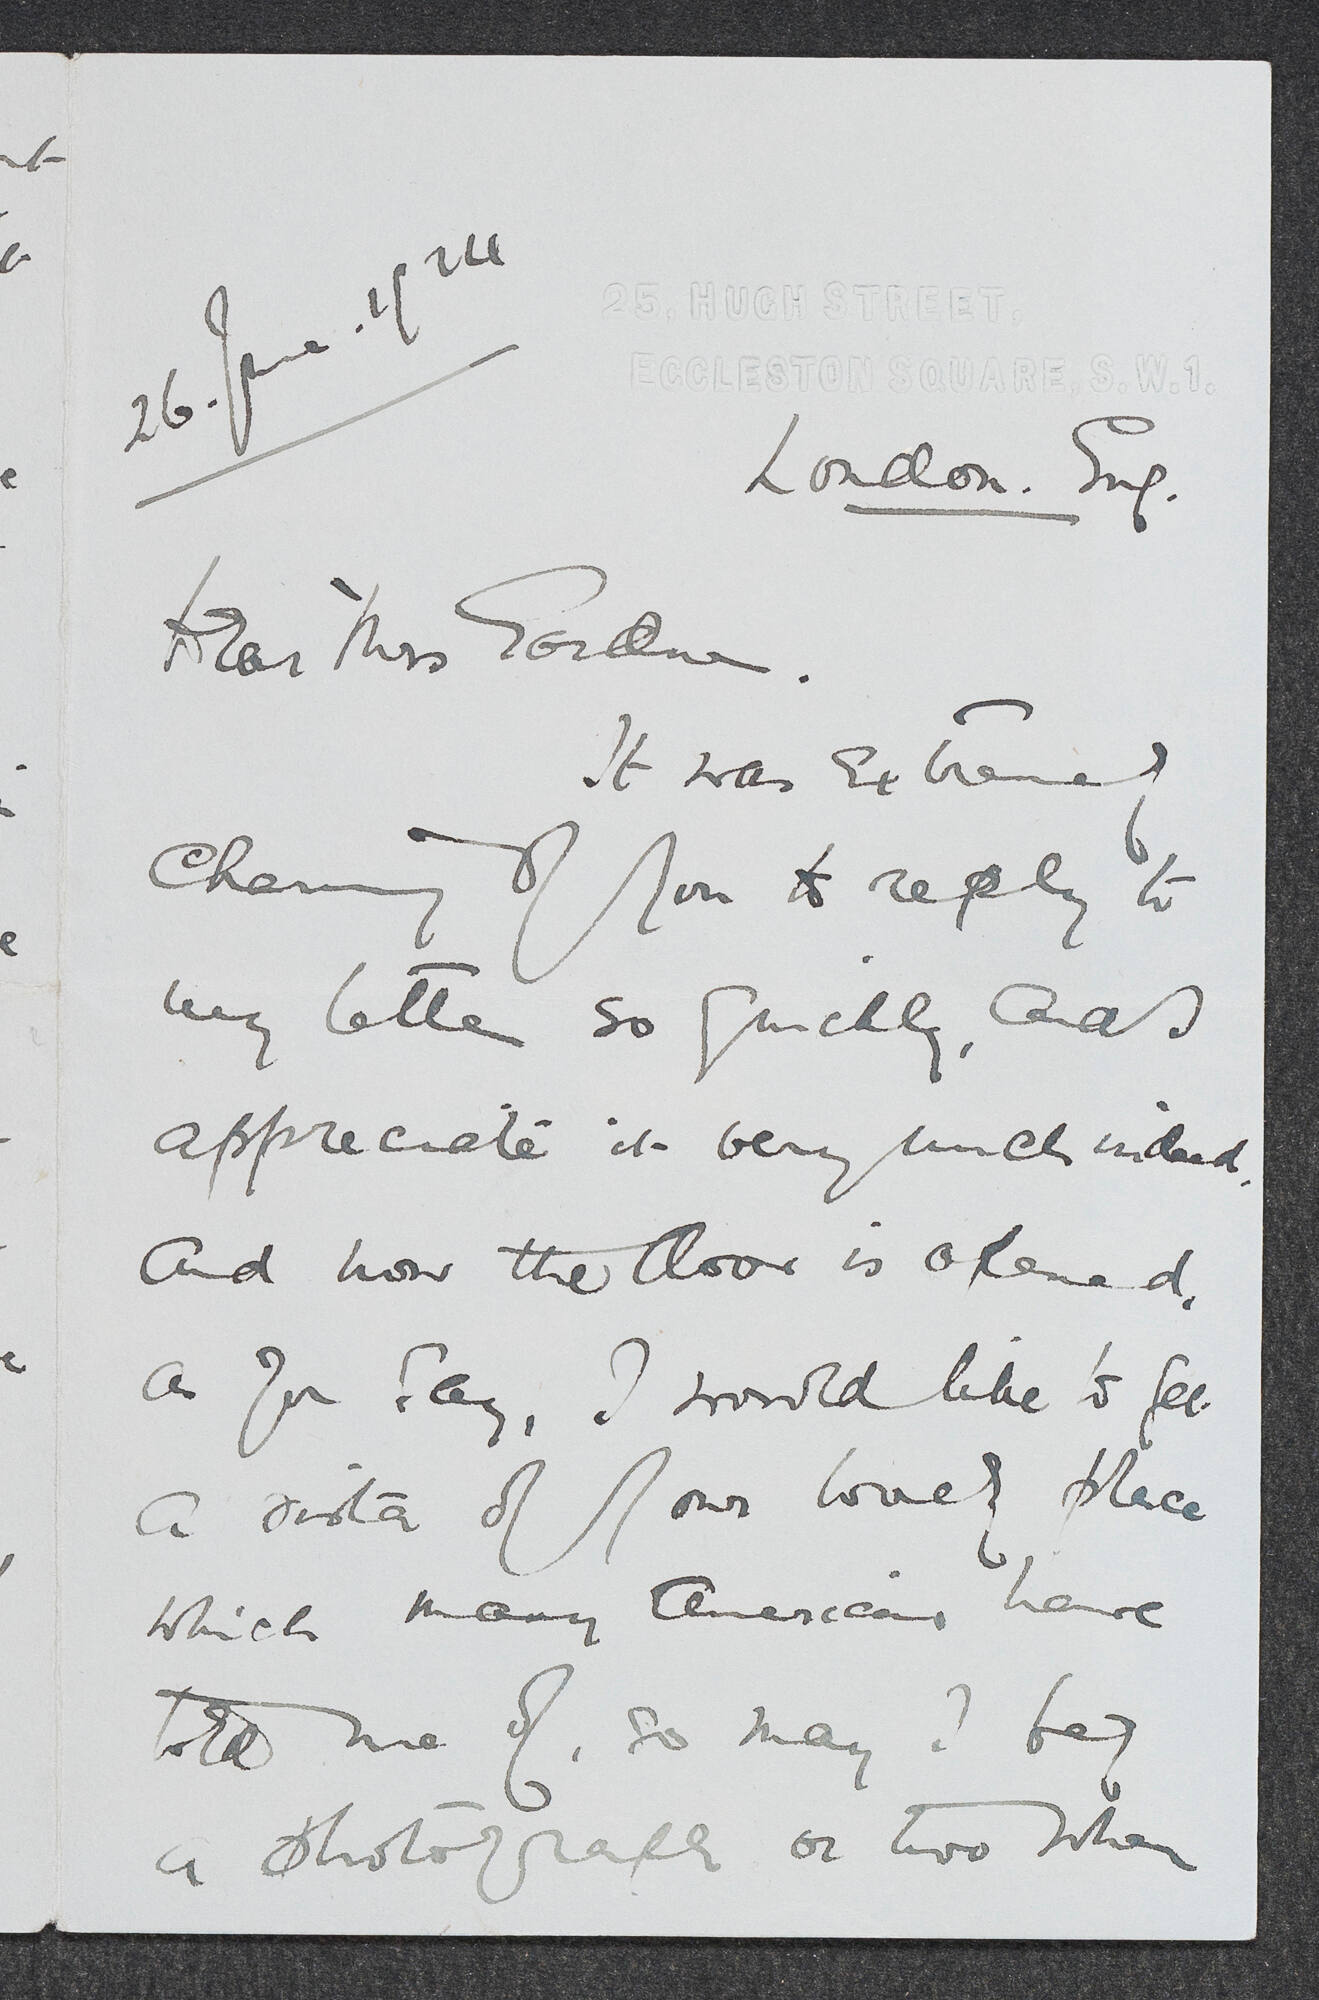 25, HUGH STREET,
ECCLESTON SQUARE, S.W.1.
26. June. 1924
London. Eng.
Dear Mrs Gardner.
It was extremely
charming of you to reply to
my letter so quickly, and I
appreciate it very much indeed.
And now the door is opened,
as you say, I would like to get
a vista of your lovely place
which many Americans have
told me of, so may I beg
a photograph or two when